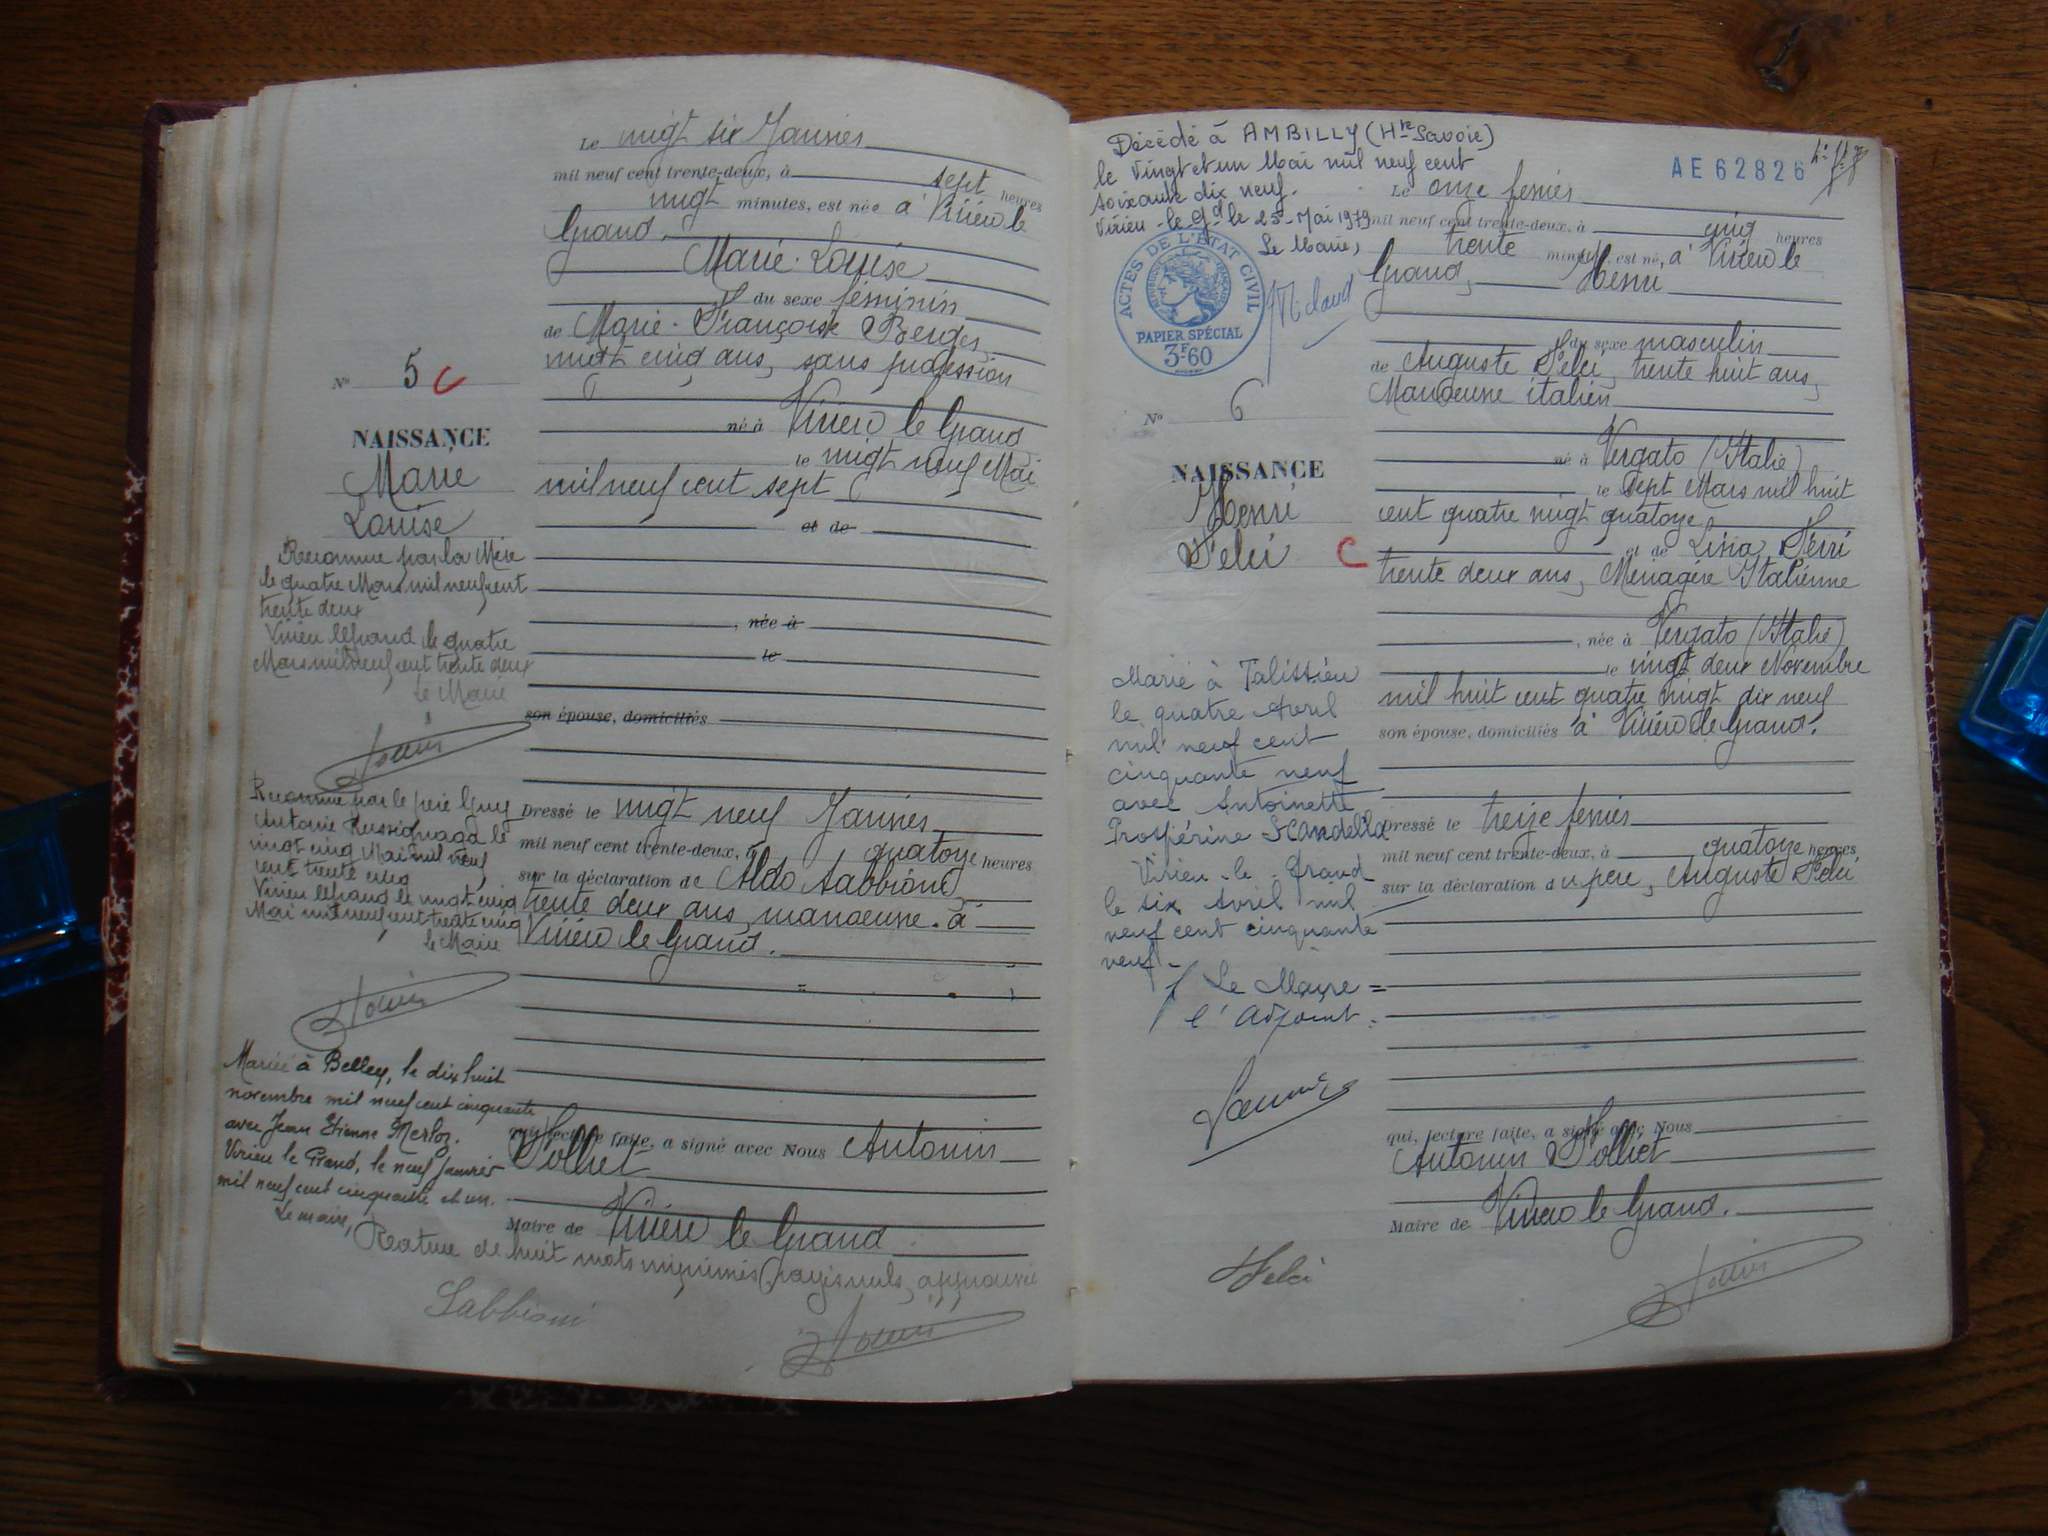 Le vingt six Janvier
mil neuf cent trente-deux, à sept heures
vingt minutes, est née à Virieu le
Grand,
Marie-Louise
du sexe féminin
de Marie-Françoise Berger
vingt cinq ans, sans profession
né à Virieu le Grand
le vingt neuf Mai
mil neuf cent sept
et de
, née à
le
son épouse, domiciliés
Dressé le vingt neuf Janvier
mil neuf cent trente-deux, à quatorze heures
sur la déclaration de Aldo Sabbioni
trente deux ans, manoeuvre à
Virieu le Grand.
qui, lecture faite, a signé avec Nous Antonin
Maire de Virieu le Grand
Rature de huit mots imprimés rayés nuls, approuvée
Sabbioni
N° 5 C
NAISSANCE
Marie
Louise
Reconnue par la Mère
le quatre Mars mil neuf cent
trente deux
Virieu le Grand le quatre
Mars mil neuf cent trente deux
Le Maire
Reconnue par le père Guy
Antoine le
vingt cinq Mai mil neuf
cent trente cinq
Virieu le Grand le vingt cinq
Mai mil neuf cent trente cinq
le Maire
Mariée à Belley, le dix huit
novembre mil neuf cent cinquante
avec Jean Etienne Merloz.
Virieu le Grand, le neuf janvier
mil neuf cent cinquante et un.
Le maire,
Décédé à AMBILLY (Hte Savoie)
le Vingt et un Mai mil neuf cent
soixante dix neuf.
Virieu-le-Gd le 25 Mai 1979
Le Maire,
ACTES DE L'ÉTAT CIVIL
PAPIER SPÉCIAL
3F60
AE 62826
Le onze février
mil neuf cent trente-deux, à cinq heures
trente minutes, est né, à Virieu le
Grand, Henri
du sexe masculin
de Auguste Felci, trente huit ans,
Manoeuvre italien
né à Vergato (Italie)
le sept Mars mil huit
cent quatre vingt quatorze
et de Livia Ferri
trente deux ans, Ménagère Italienne
, née à Vergato (Italie)
le vingt deux Novembre
mil huit cent quatre vingt dix neuf
son épouse, domiciliés à Virieu le Grand.
Dressé le treize février
mil neuf cent trente-deux, à quatorze heures
sur la déclaration du père, Auguste Felci
qui, lecture faite, a signé avec Nous
Antonin
Maire de Virieu le Grand.
Felci
N° 6
NAISSANCE
Henri
Felci C
Marié à Talissieu
le quatre Avril
mil neuf cent
cinquante neuf
avec Antoinette
Prospérine Scandella
Virieu-le-Grand
le six Avril mil
neuf cent cinquante
neuf-
Le Maire =
l'Adjoint.